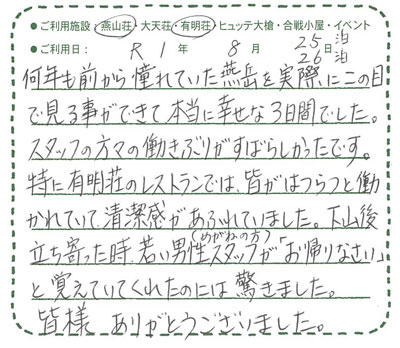 ●ご利用施設:燕山荘・大天荘・有明荘・ヒュッテ大槍・合戦小屋・イベント
●ご利用日: R1年 8月 25日泊 26 泊
何年も前から憧れていた燕岳を実際にこの目
で見る事ができて本当に幸せな3日間でした。
スタッフの方々の働きぶりがすばらしかったです。
特に有明荘のレストランでは、皆がはつらつと働
かれていて清潔感があふれていました。下山後
(めがねの方)
立ち寄った時、若い男性スタッフが「お帰りなさい」
と覚えていてくれたのには驚きました。
皆様 ありがとうございました。